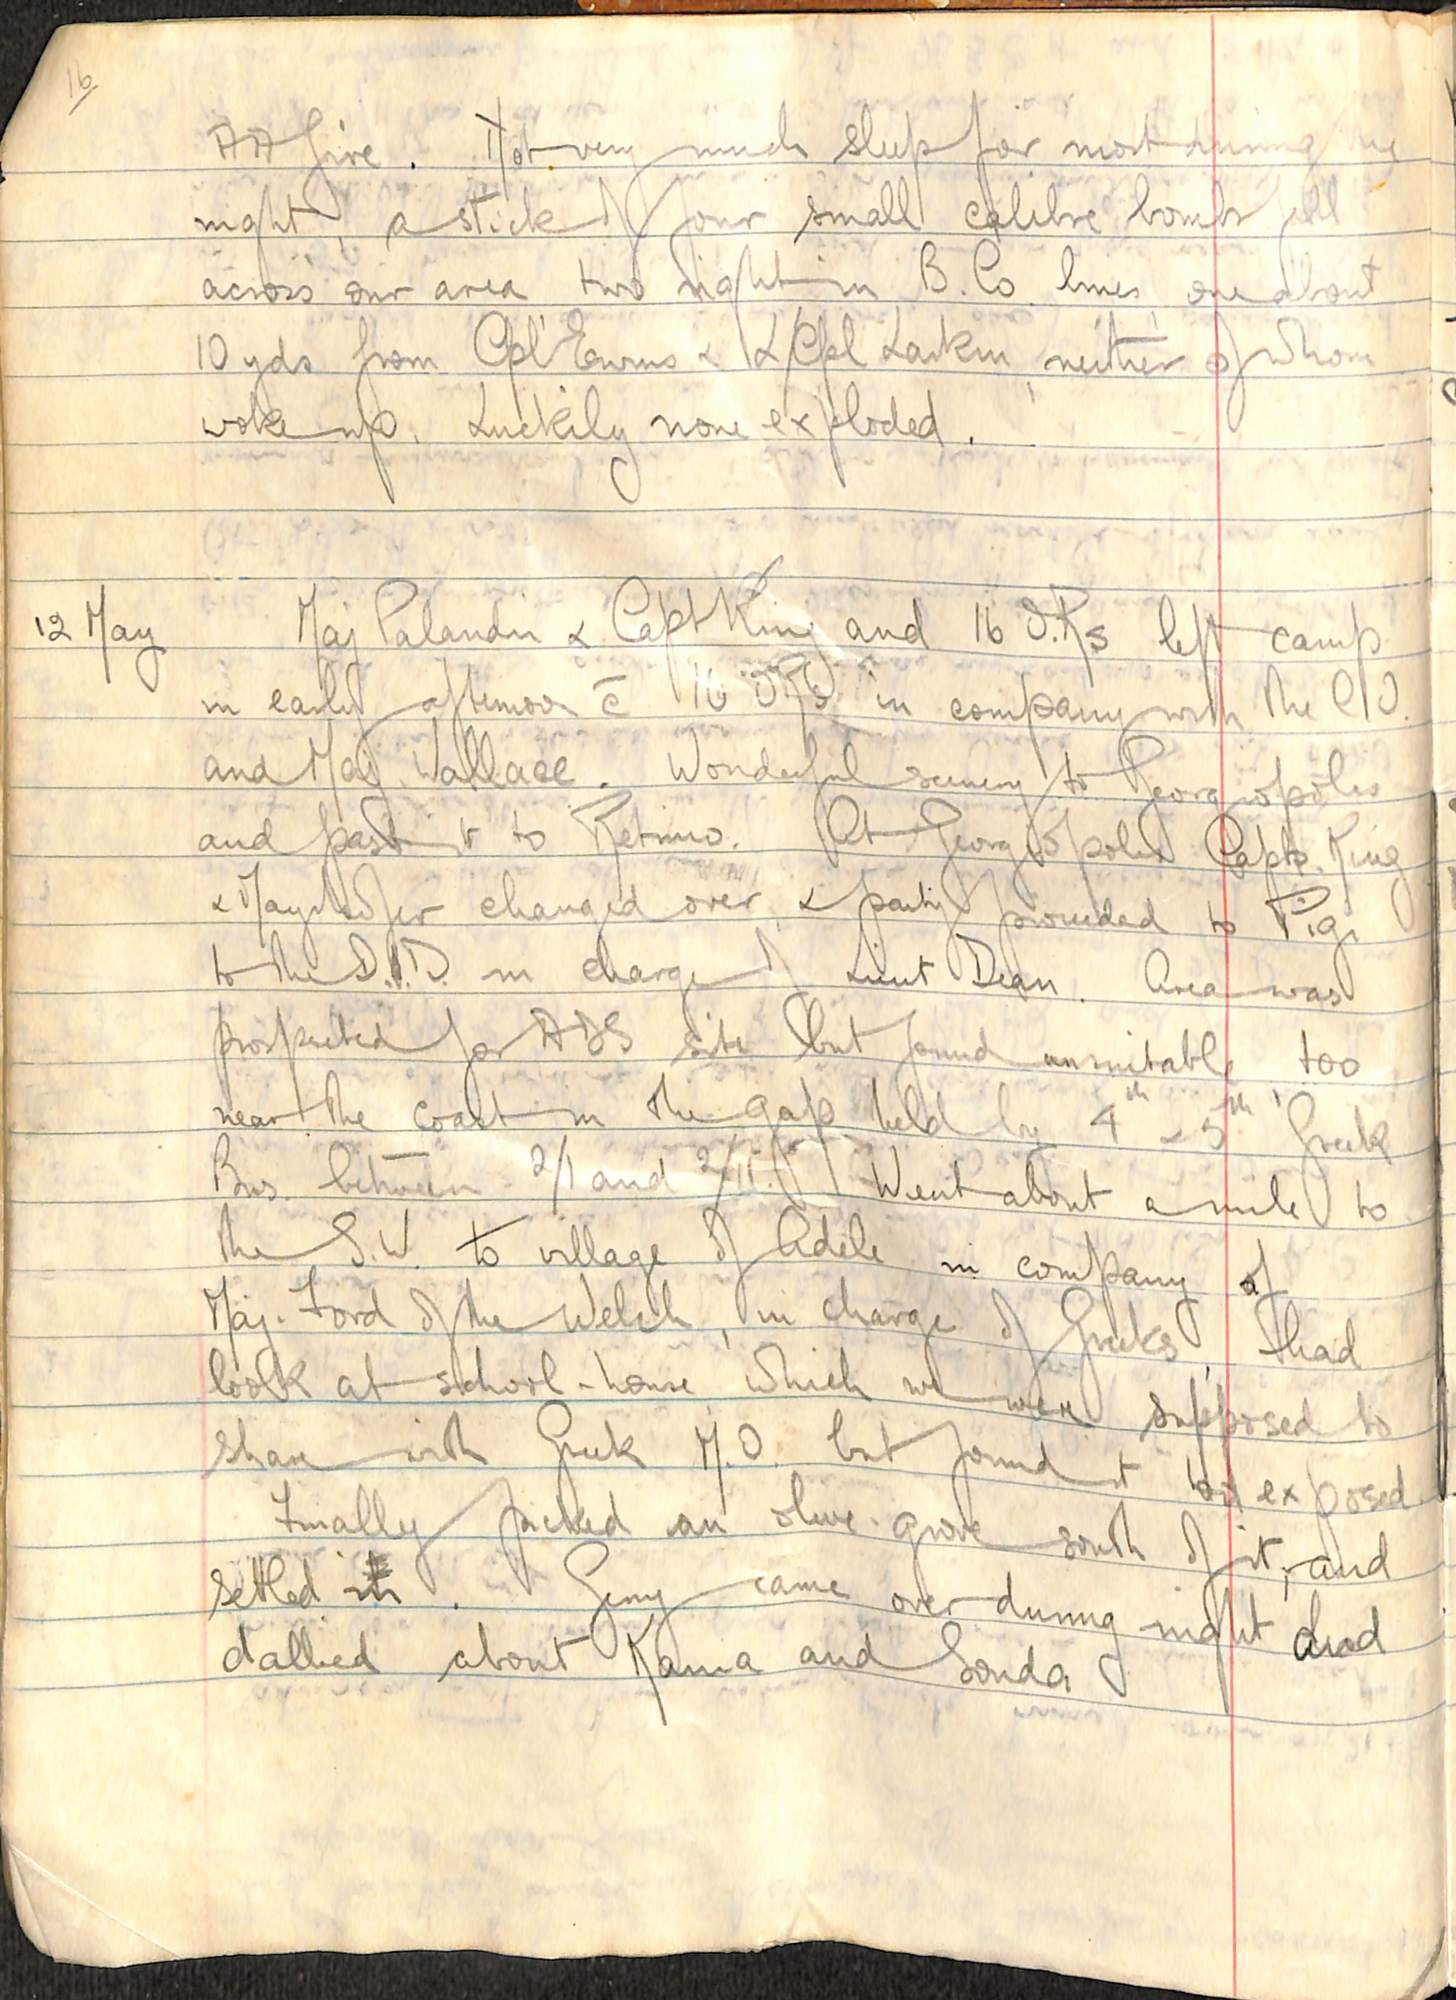 16
AA fire. Not very much sleep for most during the
night, a stick of four small calibre bombs fell
across our area two right in B. Co. lines, one about
10 yds from Cpl & L/Cpl Larkin, neither of whom
woke up. Luckily none exploded.
12 May Maj Palandri & Capt King and 16 O.Rs left camp
in early afternoon c̄ 16 O.Rs in company with the C.O.
and Maj Wallace. Wonderful scenery to Georgiopolis
and past it to Retimo. At Georgiopolis Capts. King
& changed over, & party proceeded to Pigi
to the D.I.D. in charge of Lieut Dean. Area was
prospected for ADS site but found unsuitable, too
near the coast in the gap held by 4th & 5th Greek
Bns. between 2/1 and 2/11. Went about a mile to
the S.W. to village of Adele in company of
Maj. Ford of the Welch, in charge of Greeks, & had
look at school-house which we were supposed to
share with Greek M.O. but found it too exposed
Finally picked an olive-grove south of it, and
settled in. Gerry came over during night and
dallied about Kania and Souda